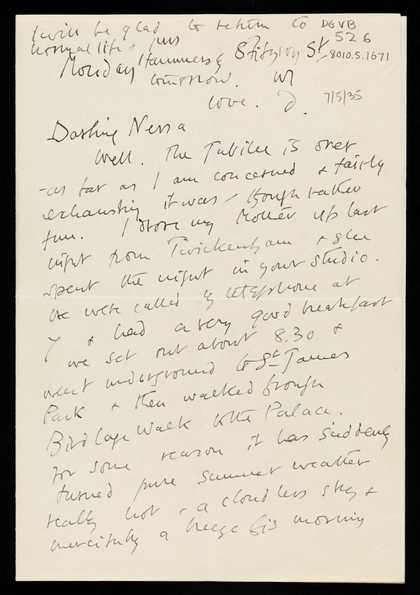 I will be glad to return to
normal life. just
DGVB
526
8010.5.1671
8 Fitzroy St
Monday
tomorrow.
love. D.
7/5/35
Darling Nessa
Well. The Jubilee is over
- as far as I am concerned & fairly
exhausting it was - though rather
fun. I drove my Mother up last
night from Twickenham & she
spent the night in your studio.
We were called by telephone at
7 & had a very good breakfast
& we set out about 8.30 &
went underground to St James
Park & then walked through
Birdcage Walk to the Palace.
For some reason it has suddenly
turned pure summer weather
really hot - a cloudless sky &
mercifully a breeze this morning